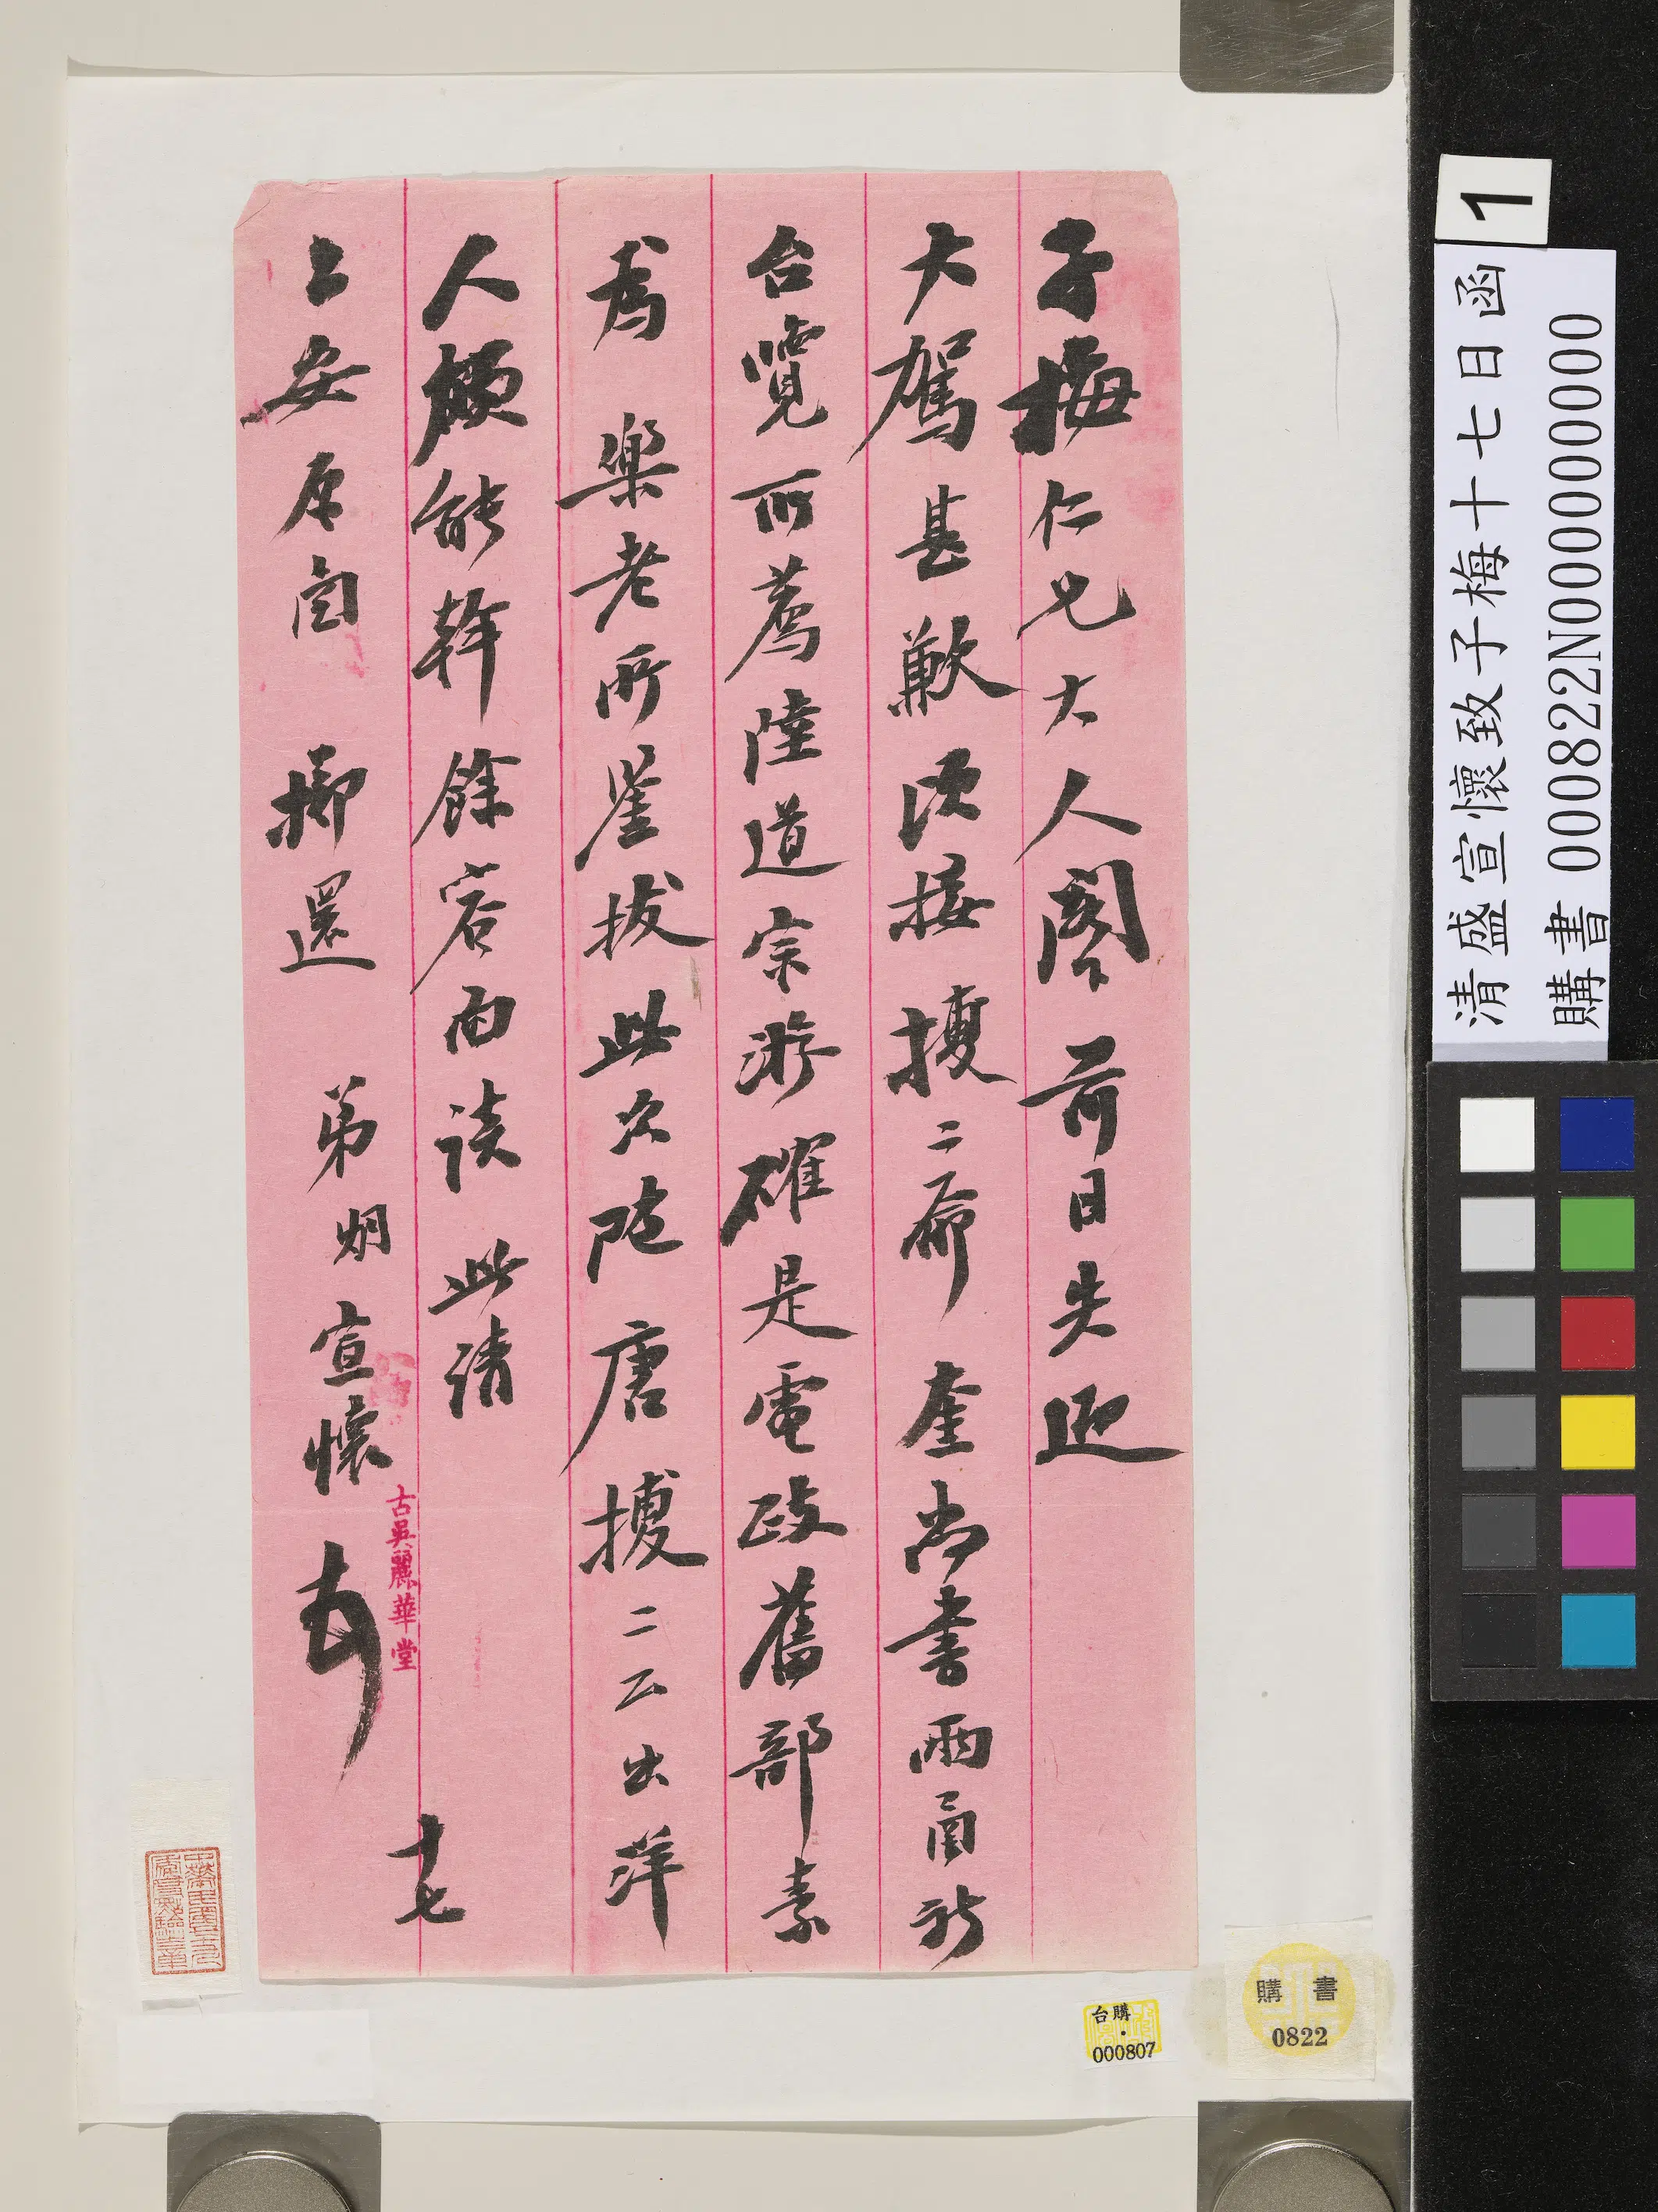 子梅仁兄大人閣下前日失迎
大駕甚歉頃接揆二和奎尚書兩函祈
台覽所薦陸道宗游確是電政舊部素
為 樂老所鑒拔此次隨唐揆二云出洋
人頗能幹餘容面談 此請
上安原函 擲還 弟期宣懷
十七
古吳麗華堂
清盛宣懷致子梅十七日函
購書 000822N000000000
1
購書
0822
台購
000807